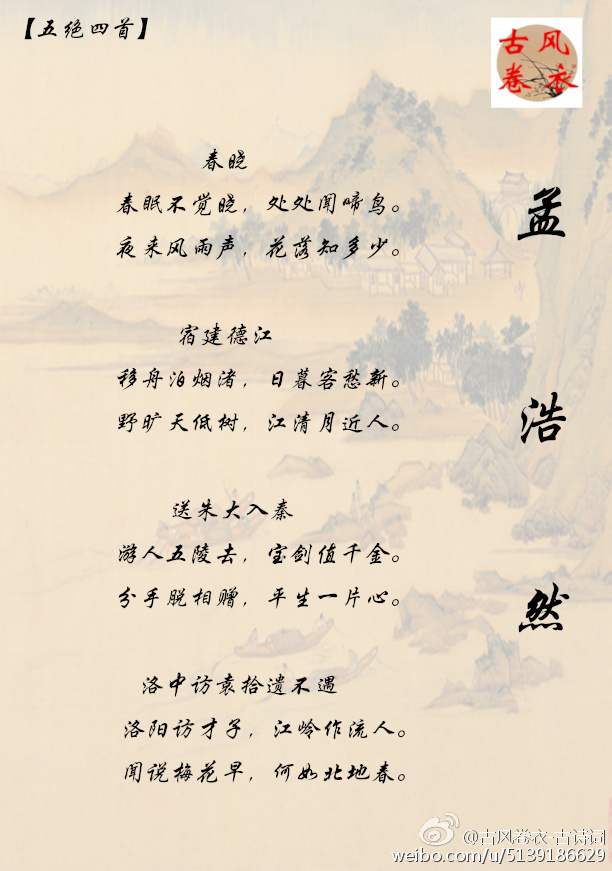 【五绝四首】
古风
卷衣
春晓
春眠不觉晓，处处闻啼鸟。
夜来风雨声，花落知多少。
宿建德江
移舟泊烟渚，日暮客愁新。
野旷天低树，江清月近人。
送朱大入秦
游人五陵去，宝剑值千金。
分手脱相赠，平生一片心。
洛中访袁拾遗不遇
洛阳访才子，江岭作流人。
闻说梅花早，何如北地春。
孟浩然
@古风卷衣-古诗词
weibo.com/u/5139186629